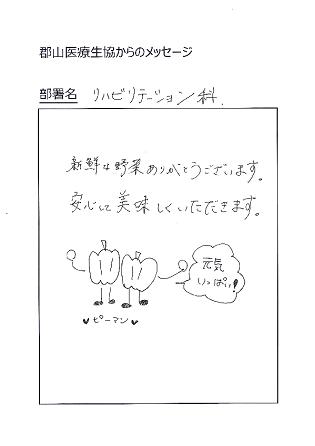 郡山医療生協からのメッセージ
部署名 リハビリテーション科.
新鮮な野菜ありがとうございます。
安心して美味しくいただきます。
元気
いっぱい!
♥ピーマン♥